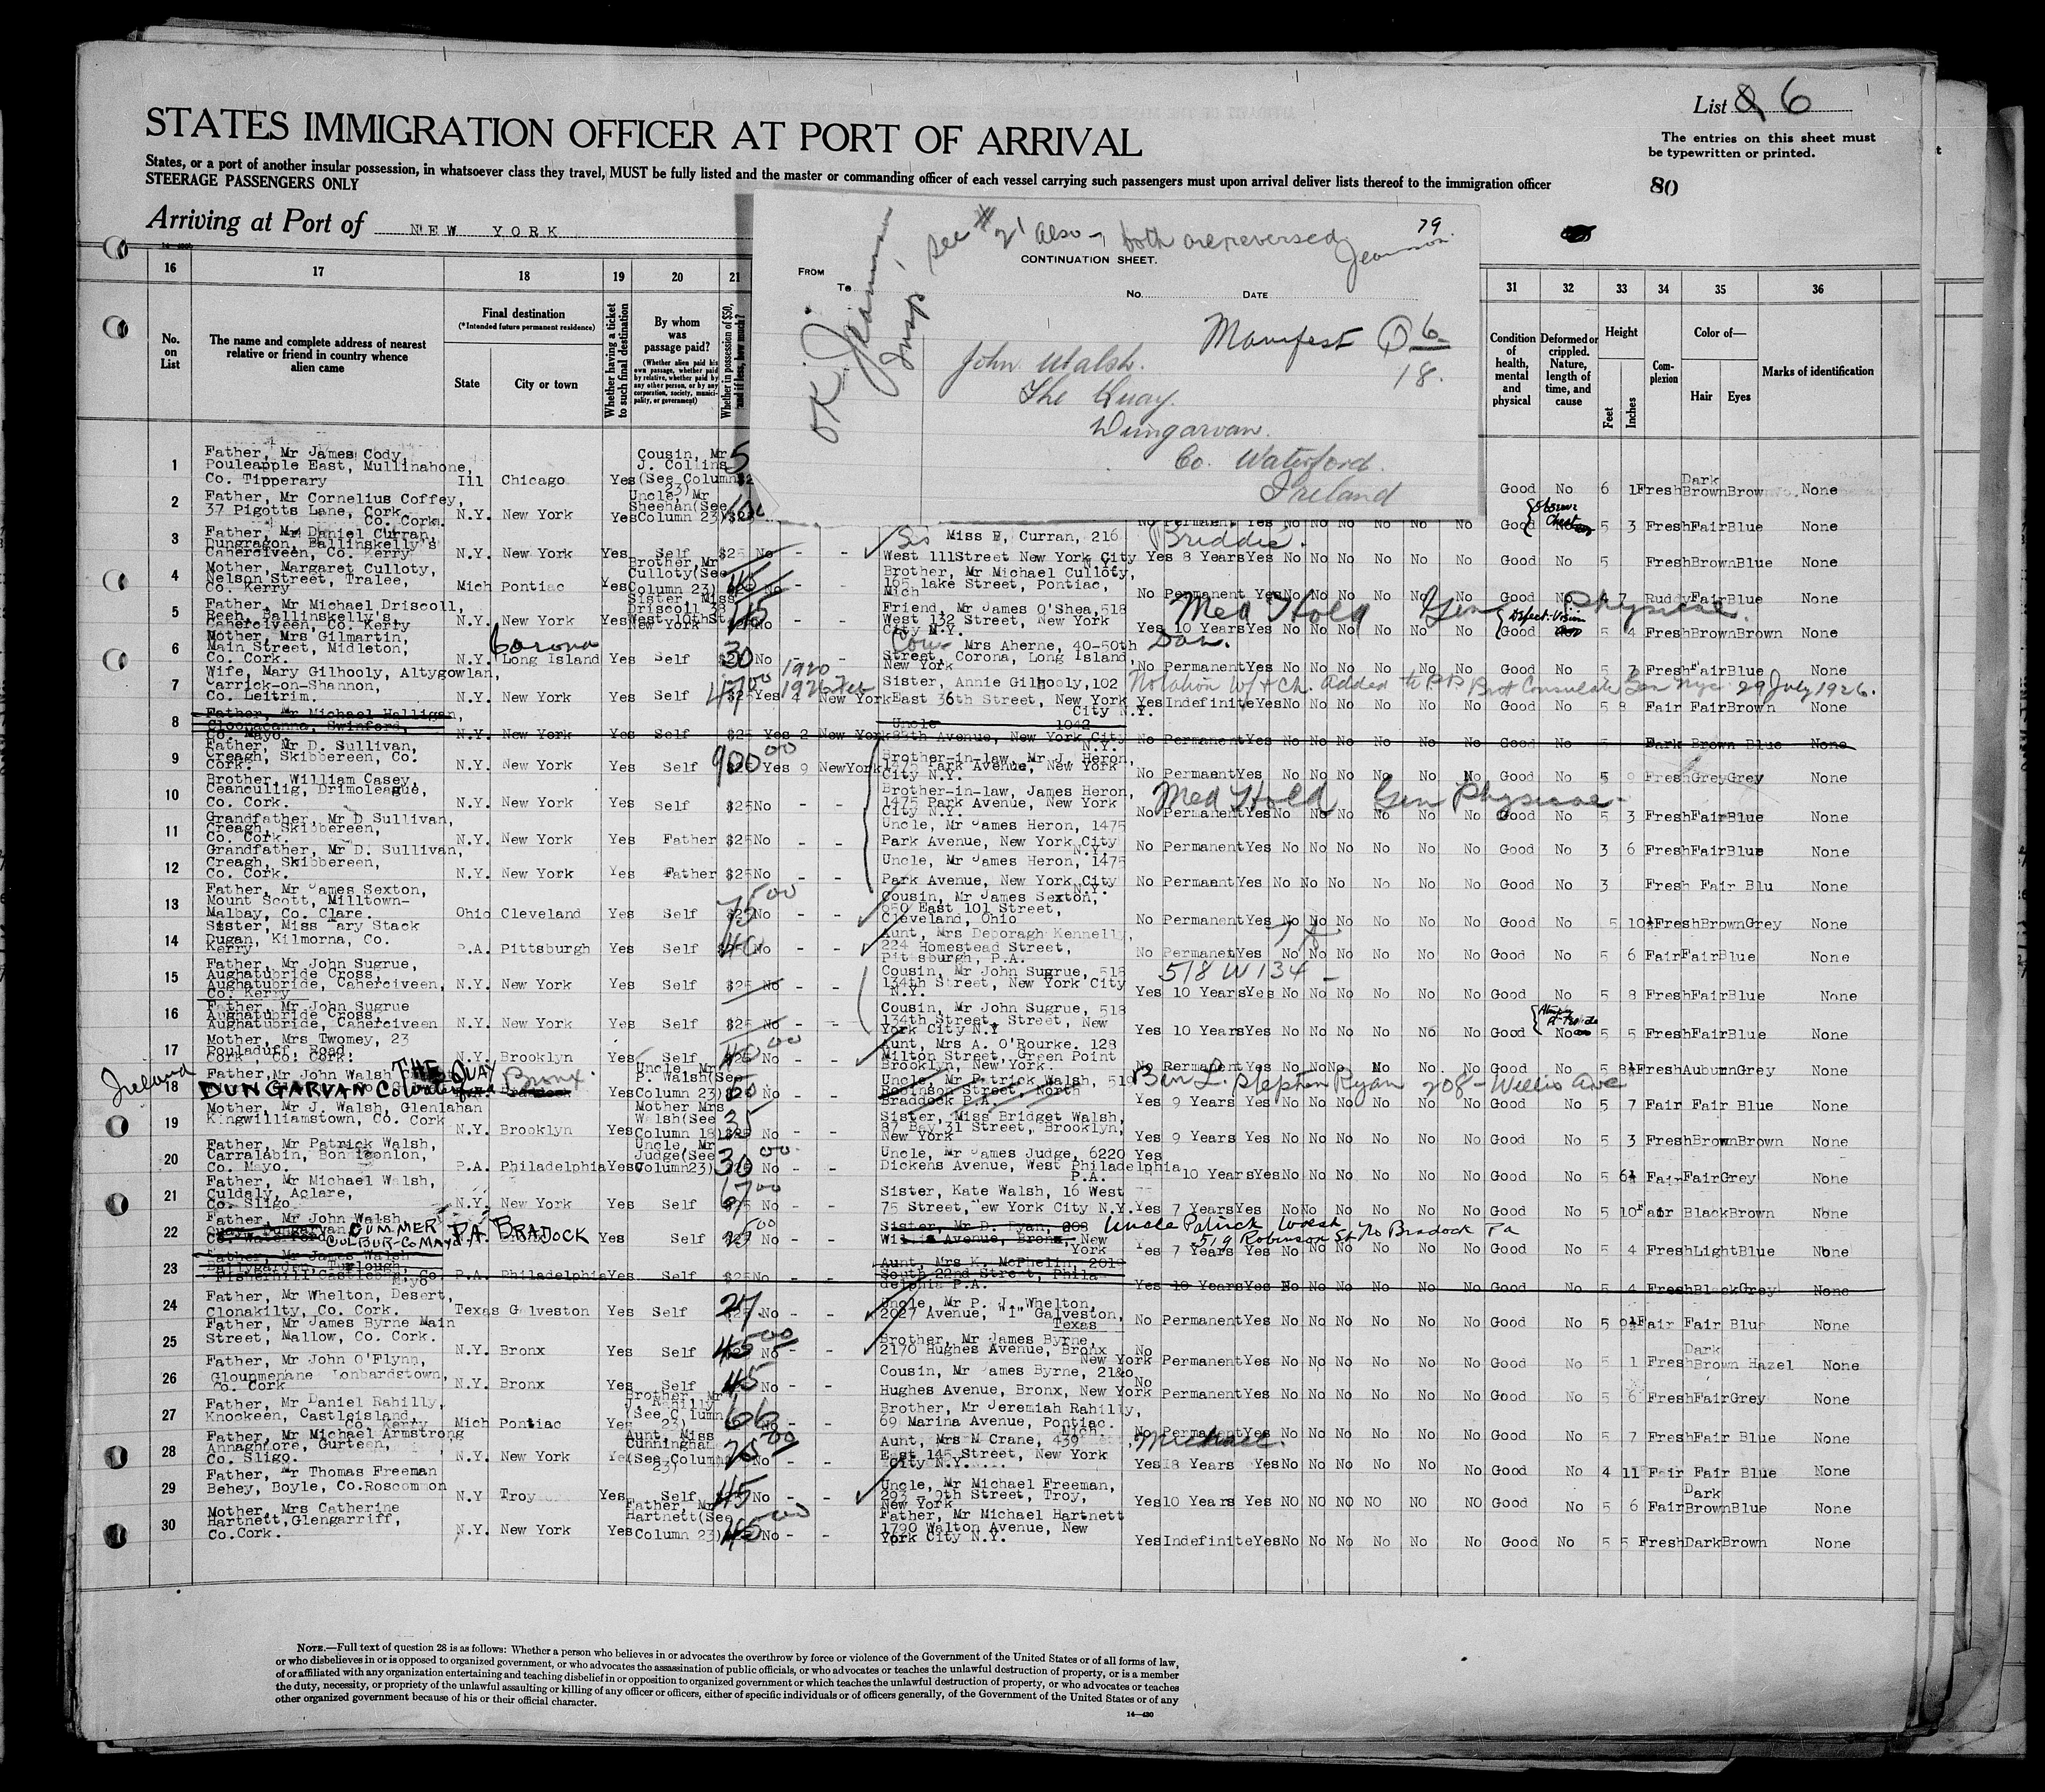 List 8 6
The entries on this sheet must
be typewritten or printed.
STATES IMMIGRATION OFFICER AT PORT OF ARRIVAL
States, or a port of another insular possession, in whatsoever class they travel, MUST be fully listed and the master or commanding officer of each vessel carrying such passengers must upon arrival deliver lists thereof to the immigration officer
STEERAGE PASSENGERS ONLY
80
Arriving at Port of NEW YORK
79
See # 21 also - both are reversed
CONTINUATION SHEET.
FROM
To
No. DATE
OK.
Manifest 6
18.
John Walsh.
The Quay.
Dungarvan.
Co. Waterford.
Ireland
16 17 18 19 20 21 31 32 33 34 35 36
No. on List
The name and complete address of nearest relative or friend in country whence alien came
Final destination
(*Intended future permanent residence)
State
City or town
Whether having a ticket to such final destination
By whom was passage paid?
(Whether alien paid his own passage, whether paid by relative, whether paid by any other person, or by any corporation, society, municipality, or government)
Whether in possession of $50, and if less, how much?
Condition of health, mental and physical
Deformed or crippled. Nature, length of time, and cause
Height
Feet
Inches
Complexion
Color of—
Hair
Eyes
Marks of identification
1 Father, Mr James Cody, Pouleapple East, Mullinahone, Co. Tipperary Ill Chicago Yes Cousin, Mr J. Collins (See Column 23) Good No 6 1 Fresh Dark Brown Brown None
2 Father, Mr Cornelius Coffey, 37 Pigotts Lane, Cork, Co. Cork. N.Y. New York Yes Uncle, Mr Sheehan (See Column 23) No Permanent Yes No No No No No No Good Observe Chest 5 3 Fresh Fair Blue None
3 Father, Mr Daniel Curran, Dungragon, Ballinskelly's Caherciveen, Co. Kerry N.Y. New York Yes Self $25 No - - Sis Miss B, Curran, 216 West 111 Street New York City Briddie. Yes 8 Years Yes No No No No No No Good No 5 Fresh Brown Blue None
4 Mother, Margaret Culloty, Nelson Street, Tralee, Co. Kerry Mich Pontiac Yes Brother, Mr Culloty (See Column 23) 45 No - - Brother, Mr Michael Culloty, 165, lake Street, Pontiac, Mich No Permanent Yes No No No No No No Good No Ruddy Fair Blue None
5 Father, Mr Michael Driscoll, Reen, Ballinskelly's, Caherciveen, Co. Kerry N.Y. New York Yes Sister, Miss Driscoll 38 West 10th St. New York 45 No Friend, Mr James O'Shea, 518 West 132 Street, New York City N.Y. Med Hold Gen Physique. Yes 10 Years Yes No No No No No No Good Defect. Vision 5 4 Fresh Brown Brown None
6 Mother, Mrs Gilmartin, Main Street, Midleton, Co. Cork. N.Y. Corona Long Island Yes Self 30 No - Cous- Mrs Aherne, 40-50th Street, Corona, Long Island, New York Dan. No Permanent Yes No No No No No No Good No 5 7 Fresh Fair Blue None
7 Wife, Mary Gilhooly, Altygowlan, Carrick-on-Shannon, Co. Leitrim. N.Y. New York Yes Self $25 Yes 4 1920 1926 New York Sister, Annie Gilhooly, 102 East 36th Street, New York City N.Y. 29 July 1926. Yes Indefinite Yes No No No No No No Good No 5 8 Fair Fair Brown None
8 Father, Mr Michael Halligan, Cloonacanna, Swinford, Co. Mayo N.Y. New York Yes Self $25 Yes 2 New York Uncle 1042 89th Avenue, New York City N.Y. No Permanent Yes No No No No No No Good No 5 Dark Brown Blue None
9 Father, Mr D. Sullivan, Creagh, Skibbereen, Co. Cork. N.Y. New York Yes Self 900 00 $25 Yes 9 New York Brother-in-law, Mr J. Heron, 1475 Park Avenue, New York City N.Y. No Permaent Yes No No No No No No Good No 5 9 Fresh Grey Grey None
10 Brother, William Casey, Ceancullig, Drimoleague, Co. Cork. N.Y. New York Yes Self $25 No - - Brother-in-law, James Heron, 1475 Park Avenue, New York City N.Y. Med Hold Gen Physique- No Permanent Yes No No No No No No Good No 5 3 Fresh Fair Blue None
11 Grandfather, Mr D Sullivan, Creagh, Skibbereen, Co. Cork. N.Y. New York Yes Father $25 No - - Uncle, Mr James Heron, 1475 Park Avenue, New York City N.Y. No Permanent Yes No No No No No No Good No 3 6 Fresh Fair Blue None
12 Grandfather, Mr D. Sullivan, Creagh, Skibbereen, Co. Cork. N.Y. New York Yes Father $25 No - - Uncle, Mr James Heron, 1475 Park Avenue, New York City N.Y. No Permaent Yes No No No No No No Good No 3 Fresh Fair Blu None
13 Father, Mr James Sexton, Mount Scott, Milltown-Malbay, Co. Clare. Ohio Cleveland Yes Self 75 00 $25 No - - Cousin, Mr James Sexton, 650 East 101 Street, Cleveland, Ohio No Permanent Yes No No No No No No Good No 5 10½ Fresh Brown Grey None
14 Sister, Miss Mary Stack Dugan, Kilmorna, Co. Kerry P.A. Pittsburgh Yes Self 40 No - - Aunt, Mrs Deboragh Kennelly, 224 Homestead Street, Pittsburgh, P.A. No Permanent Yes No No No No No No Good No 5 6 Fair Fair Blue None
15 Father, Mr John Sugrue, Aughatubride Cross, Aughatubride, Caherciveen, Co. Kerry N.Y. New York Yes Self $25 No - - Cousin, Mr John Sugrue, 518 134th Street, New York City N.Y. 518 W 134 - Yes 10 Years Yes No No No No No No Good No 5 8 Fresh Fair Blue None
16 Father, Mr John Sugrue Aughatubride Cross, Aughatubride, Caherciveen N.Y. New York Yes Self $25 No - - Cousin, Mr John Sugrue, 518 134th Street, Street, New York City N.Y Yes 10 Years Yes No No No No No No Good No 5 5 Fresh Fair Blue None
17 Mother, Mrs Twomey, 23 Pouladuff, Road, Cork, Co. Cork. N.Y. Brooklyn Yes Self 40 00 $25 No - - Aunt, Mrs A. O'Rourke. 128 Milton Street, Green Point Brooklyn, New York. No Permanent Yes No No No No No No Good No 5 8½ Fresh Auburn Grey None
18 Father, Mr John Walsh Ireland THE QUAY DUNGARVAN Co Waterford Bronx. Braddock Yes Uncle, Mr P. Walsh (See Column 23) 50 Uncle, Mr Patrick Walsh, 519 Robinson Street, North Braddock P.A. Bro. L. Stephen Ryan 208 - Willis Ave Yes 9 Years Yes No No No No No No Good No 5 7 Fair Fair Blue None
19 Mother, Mr J. Walsh, Glenlahan Kingwilliamstown, Co. Cork N.Y. Brooklyn Yes Mother Mrs Walsh (See Column 18) 35 $25 No Sister, Miss Bridget Walsh, 87 Bay 31 Street, Brooklyn, New York Yes 9 Years Yes No No No No No No Good No 5 3 Fresh Brown Brown None
20 Father, Mr Patrick Walsh, Carralabin, Bonniconlon, Co. Mayo. P.A. Philadelphia Yes Uncle, Mr Judge (See Column 23) 30 00 No - Uncle, Mr James Judge, 6220 Dickens Avenue, West Philadelphia P.A. Yes 10 Years Yes No No No No No No Good No 5 6½ Fair Fair Grey None
21 Father, Mr Michael Walsh, Culdaly, Aclare, Co. Sligo N.Y. New York Yes Self 67 00 No - Sister, Kate Walsh, 16 West 75 Street, New York City N.Y. Yes 7 Years Yes No No No No No No Good No 5 10 Fair Black Brown None
22 Father, Mr John Walsh, Quay, Dungarvan Co. Waterford CUMMER CULBUR- CO MAYO P.A. BRADOCK Yes Self 25 00 No - Sister, Mr D. Ryan, 208 Willis Avenue, Bronx, New York Uncle Patrick Walsh 519 Robinson St No Bradock Pa Yes 7 Years Yes No No No No No No Good No 5 4 Fresh Light Blue None
23 Father, Mr James Walsh Ballygarden, Turlough, Fisherhill Castlebar, Co Mayo P.A. Philadelphia Yes Self $25 No - - Aunt, Mrs K. McPhelin, 2019 South 22nd Street, Philadelphia P.A. Yes 10 Years Yes No No No No No No Good No 5 4 Fresh Black Grey None
24 Father, Mr Whelton, Desert, Clonakilty, Co. Cork. Texas Galveston Yes Self 27 No - - Uncle, Mr P. J. Whelton, 2027 Avenue, "I" Galveston, Texas No Permanent Yes No No No No No No Good No 5 9½ Fair Fair Blue None
25 Father, Mr James Byrne Main Street, Mallow, Co. Cork. N.Y. Bronx Yes Self 45 00 No - - Brother, Mr James Byrne, 2170 Hughes Avenue, Bronx New York No Permanent Yes No No No No No No Good No 5 1 Fresh Dark Brown Hazel None
26 Father, Mr John O'Flynn, Gloupmenane Lombardstown, Co. Cork N.Y. Bronx Yes Self 45 No - - Cousin, Mr James Byrne, Hughes Avenue, Bronx, New York No Permanent Yes No No No No No No Good No 5 6 Fresh Fair Grey None
27 Father, Mr Daniel Rahilly, Knockeen, Castleisland, Co. Kerry Mich Pontiac Yes Brother, Mr J. Rahilly (See Column 23) No - - Brother, Mr Jeremiah Rahilly, 69 Marina Avenue, Pontiac. Mich. No Permanent Yes No No No No No No Good No 5 7 Fresh Fair Blue None
28 Father, Mr Michael Armstrong Annaghmore, Gurteen, Co. Sligo. N.Y. New York Yes Aunt, Miss Cunningham (See Column 23) No - - Aunt, Mrs M Crane, 439 East 145 Street, New York City N.Y. Michael. Yes 8 Years Yes No No No No No No Good No 4 11 Fair Fair Blue None
29 Father, Mr Thomas Freeman Behey, Boyle, Co.Roscommon N.Y Troy Yes Self 45 No - - Uncle, Mr Michael Freeman, 293, 9th Street, Troy, New York Yes 10 Years Yes NO NO NO NO NO NO Good No 5 6 Fair Dark Brown Blue None
30 Mother, Mrs Catherine Hartnett, Glengarriff, Co.Cork. N.Y. New York Yes Father, Mr Hartnett (See Column 23) 45 00 No - - Father, Mr Michael Hartnett 1790 Walton Avenue, New York City N.Y. Yes Indefinite Yes No No No No No No Good No 5 5 Fresh Dark Brown None
NOTE.—Full text of question 28 is as follows: Whether a person who believes in or advocates the overthrow by force or violence of the Government of the United States or of all forms of law,
or who disbelieves in or is opposed to organized government, or who advocates the assassination of public officials, or who advocates or teaches the unlawful destruction of property, or is a member
of or affiliated with any organization entertaining and teaching disbelief in or opposition to organized government or which teaches the unlawful destruction of property, or who advocates or teaches
the duty, necessity, or propriety of the unlawful assaulting or killing of any officer or officers, either of specific individuals or of officers generally, of the Government of the United States or of any
other organized government because of his or their official character.
14—430